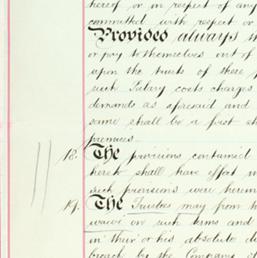 hereof or in respect of any
committed with respect or
Provided always th
or pay to themselves out of
upon the trusts of these p
such Salary costs charges
demands as aforesaid and
same shall be a first ch
premises
18. The provisions contained
hereto shall have effect in
such provisions were herein
19. The Trustees may from t
waive on such terms and
in their or his absolute d
breach by the Company o